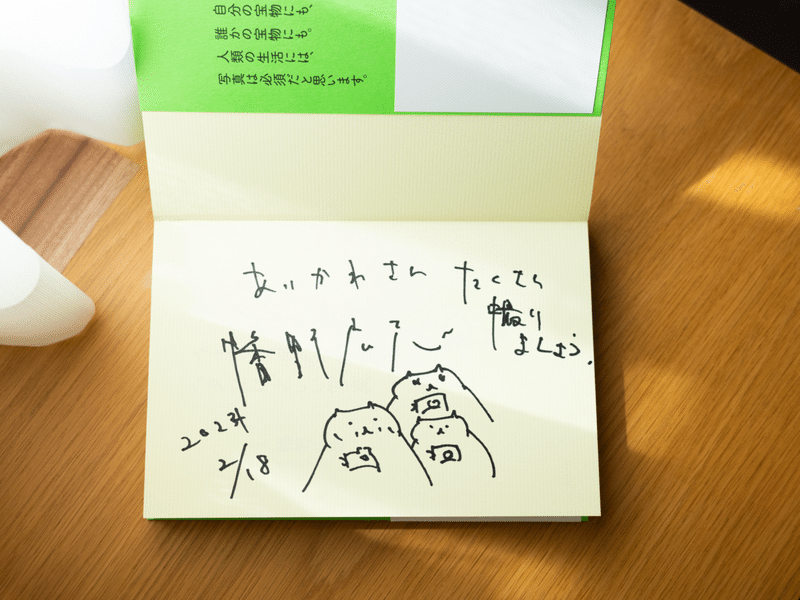 自分の宝物にも、
誰かの宝物にも。
人類の生活には、
写真は必須だと思います。
あいかわさん たくさん
撮り
ましょう。
幡野広志
2023年
2/18